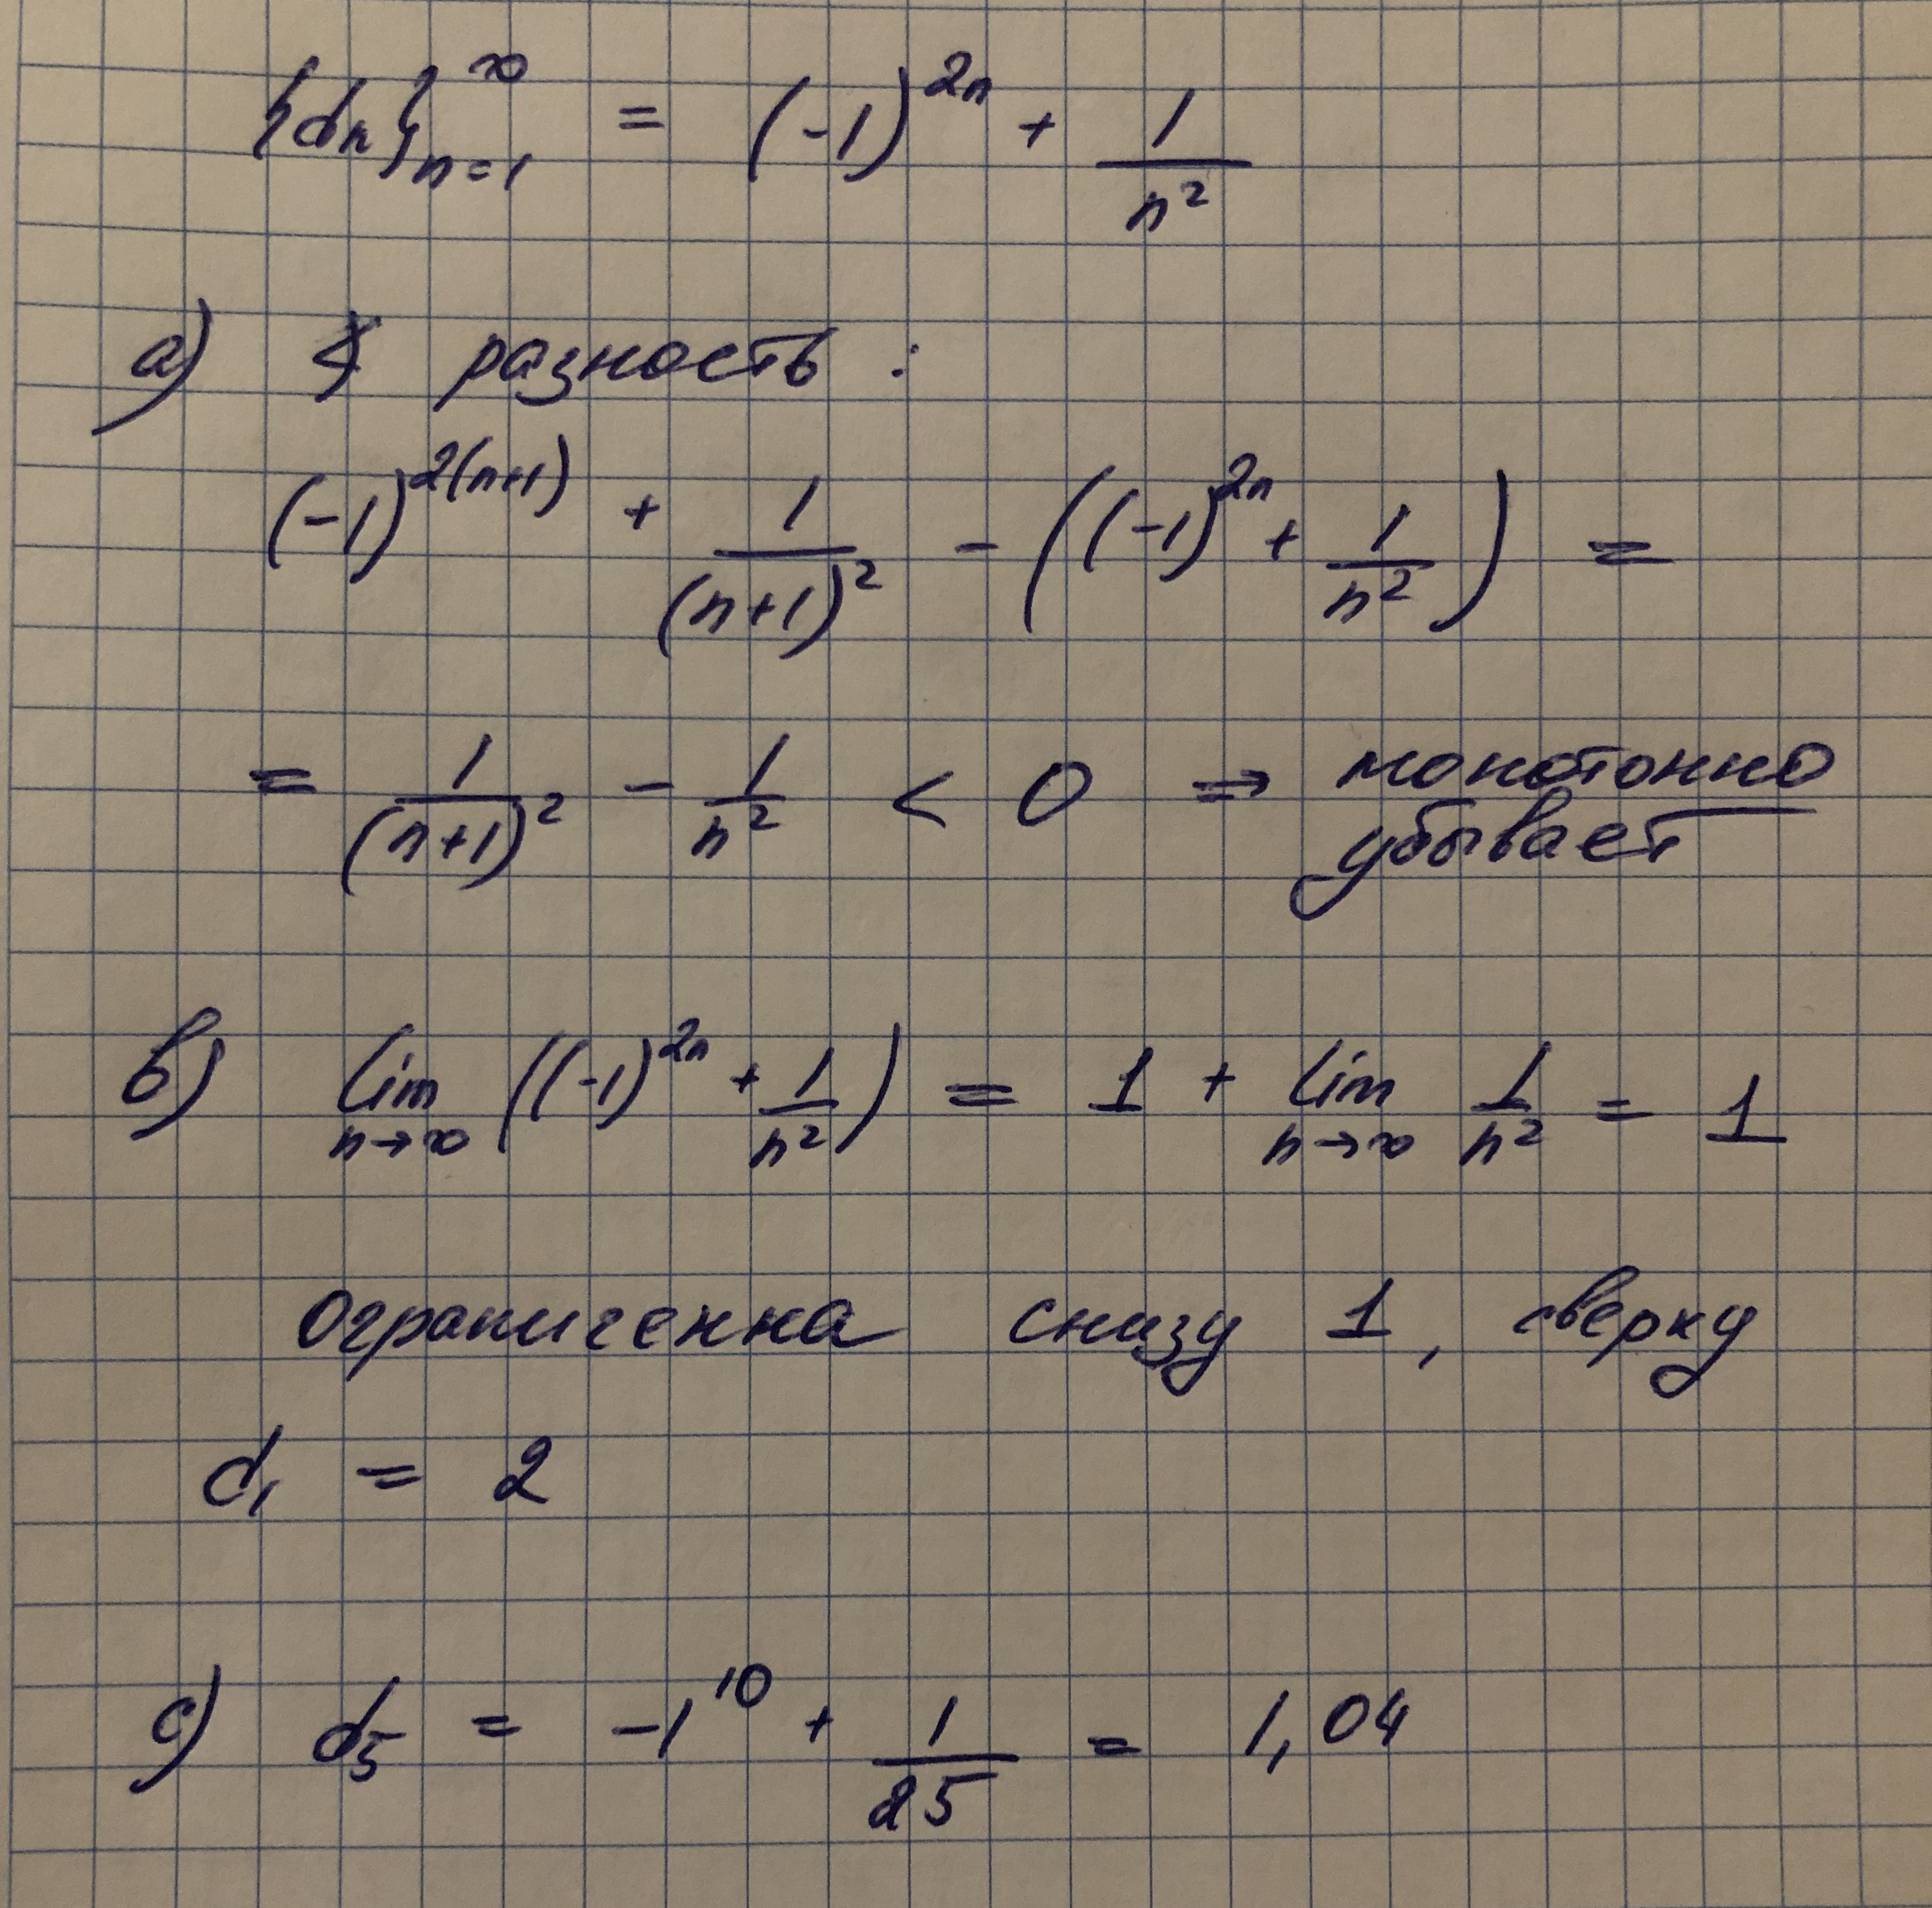 {dn}_{n=1}^{∞} = (-1)^{2n} + 1/n²
a) разность :
(-1)^{2(n+1)} + 1/(n+1)² - ((-1)^{2n} + 1/n²) =
= 1/(n+1)² - 1/n² < 0 ⇒ монотонно
убывает
в) lim_{n→∞} ((-1)^{2n} + 1/n²) = 1 + lim_{n→∞} 1/n² = 1
ограниченна снизу 1, сверху
d₁ = 2
c) d₅ = -1^{10} + 1/25 = 1,04